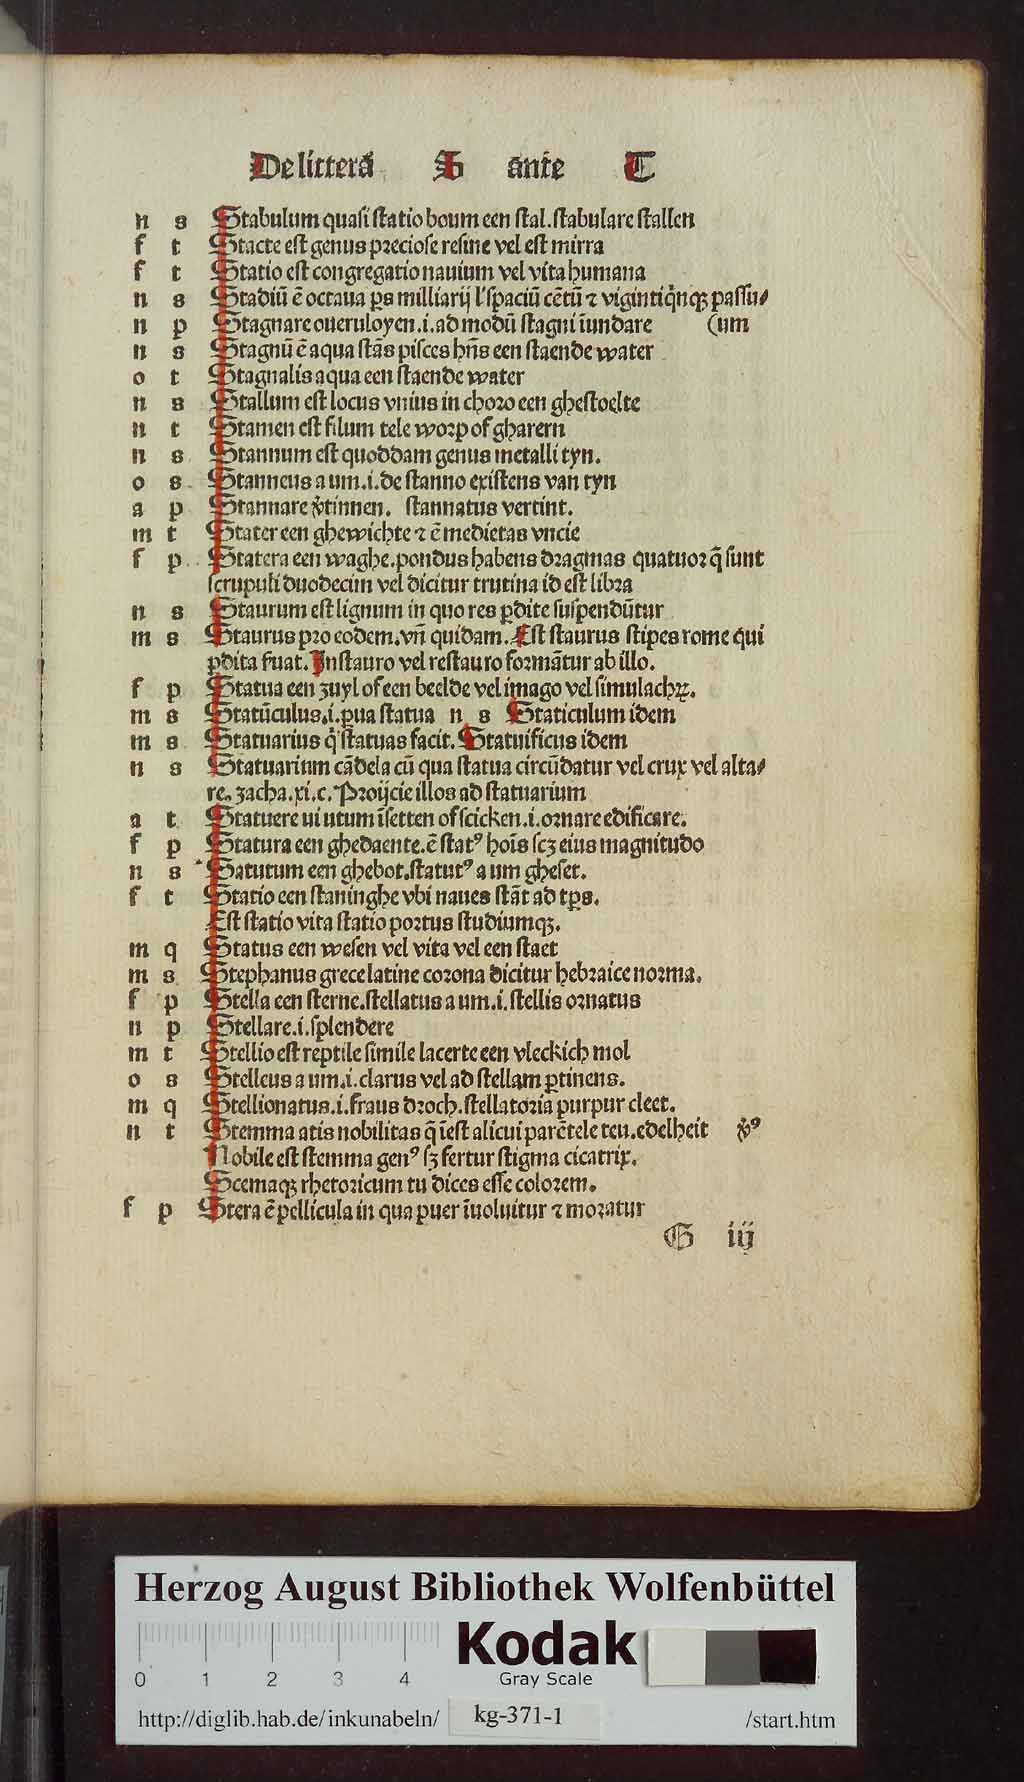 De litterā S ante T
n s Stabulum quasi statio boum een stal. stabulare stallen
f t Stacte est genus preciose resine vel est mirra
f t Statio est congregatio nauium vel vita humana
n s Stadiū ē octaua ꝑs milliarij l' spaciū cētū ⁊ viginti qͥnqꝫ passu⸗
n p Stagnare oueruloyen .i. ad modū stagni īundare (um
n s Stagnū ē aqua stās pisces hñs een staende water
o t Stagnalis aqua een staende water
n s Stallum est locus vnius in choro een ghestoelte
n t Stamen est filum tele worp of gharern
n s Stannum est quoddam genus metalli tyn.
o s Stanneus a um .i. de stanno existens van tyn
a p Stannare v̓tinnen. stannatus vertint.
m t Stater een ghewichte ⁊ ē medietas vncie
f p Statera een waghe. pondus habens dragmas quatuor q̄ sunt
scrupuli duodecim vel dicitur trutina id est libra
n s Staurum est lignum in quo res ꝑdite suspendūtur
m s Staurus pro eodem. vñ quidam. Est staurus stipes rome qui
ꝑdita fuat. Instauro vel restauro formātur ab illo.
f p Statua een zuyl of een beelde vel imago vel simulachꝝ.
m s Statūculus .i. ꝑua statua n s Staticulum idem
m s Statuarius qͥ statuas facit. Statuificus idem
n s Statuarium cādela cū qua statua circūdatur vel crux vel alta⸗
re. zacha. xi. c. Proijcie illos ad statuarium
a t Statuere ui utum īsetten of scicken .i. ornare edificare.
f p Statura een ghedaente. ē statꝰ hoīs scꝫ eius magnitudo
n s Satutum een ghebot. statutꝰ a um gheset.
f t Statio een staninghe vbi naues stāt ad tꝑs.
Est statio vita statio portus studiumqꝫ.
m q Status een wesen vel vita vel een staet
m s Stephanus grece latine corona dicitur hebraice norma.
f p Stella een sterne. stellatus a um .i. stellis ornatus
n p Stellare .i. splendere
m t Stellio est reptile simile lacerte een vleckich mol
o s Stelleus a um .i. clarus vel ad stellam ꝑtinens.
m q Stellionatus .i. fraus droch. stellatoria purpur cleet.
n t Stemma atis nobilitas q̄ īest alicui parētele teu. edelheit v̓ꝰ
Nobile est stemma genꝰ sꝫ fertur stigma cicatrix.
Scemaqꝫ rhetoricum tu dices esse colorem.
f p Stera ē pellicula in qua puer īuoluitur ⁊ moratur
G iij
Herzog August Bibliothek Wolfenbüttel
Kodak
Gray Scale
0 1 2 3 4
http://diglib.hab.de/inkunabeln/ kg-371-1 /start.htm